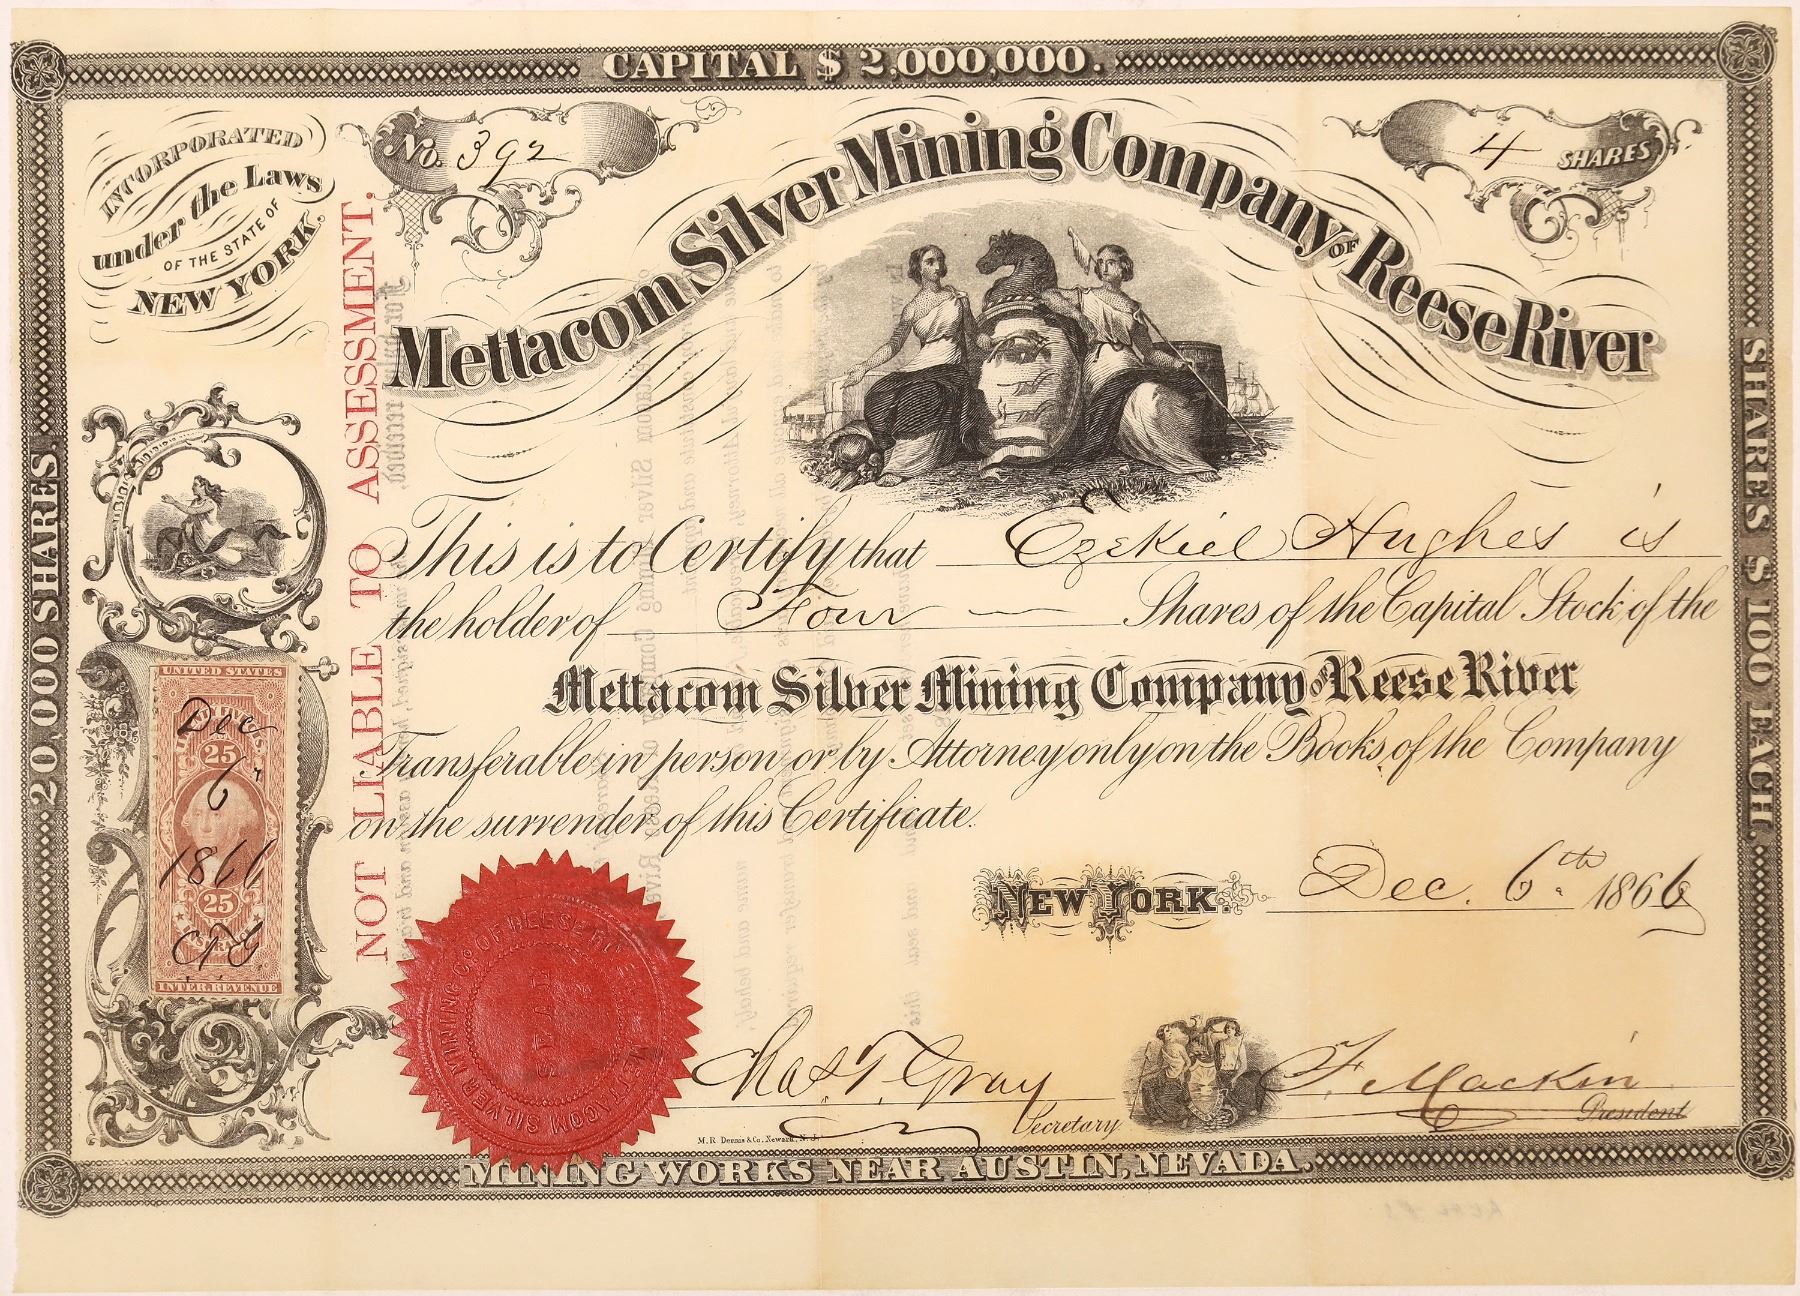 CAPITAL $ 2,000,000.
INCORPORATED
under the Laws
OF THE STATE OF
NEW YORK.
No. 392
4 SHARES
Mettacom Silver Mining Company OF Reese River
20,000 SHARES.
SHARES $ 100 EACH.
NOT LIABLE TO ASSESSMENT.
This is to Certify that Ezekiel Hughes is
the holder of Four Shares of the Capital Stock of the
Mettacom Silver Mining Company OF Reese River
Transferable in person or by Attorney only on the Books of the Company
on the surrender of this Certificate.
UNITED STATES
Dec
25
6
1866
25
INTER. REVENUE
NEW YORK. Dec. 6th 1866
METTACOM SILVER MINING Co. OF REESE RIVER
Chas T. Gray
Secretary
F. Mackin
President
M.R. Dennis & Co. Newark, N.J.
MINING WORKS NEAR AUSTIN, NEVADA.